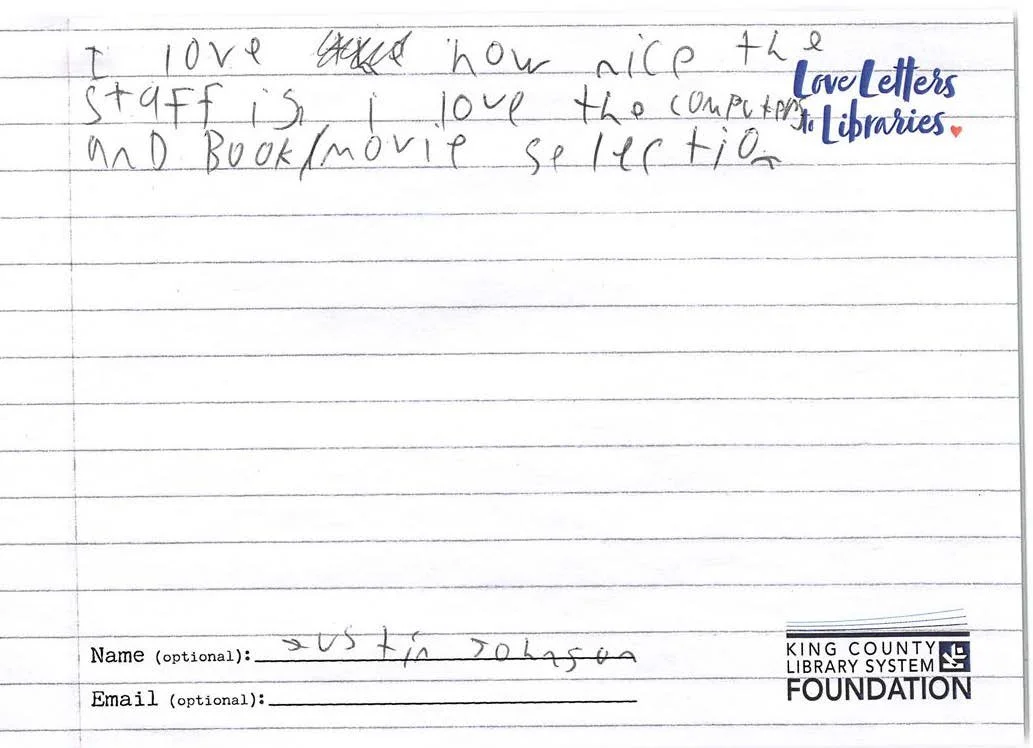 I love how nice the
staff is. i love the computers
and Book/movie selection
Love Letters
to Libraries.
Name (optional): Justin Johnson
Email (optional):
KING COUNTY
LIBRARY SYSTEM
FOUNDATION